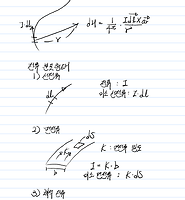 I·dl
r
dH = 1/4π · Idl × a / r²
1) 선전류
dl
전류 : I
미소 선전류 : I·dl
2) 면전류
dS
K : 면전류 밀도
I = K·b
b
미소 면전류 : K·dS
3) 체적 전류